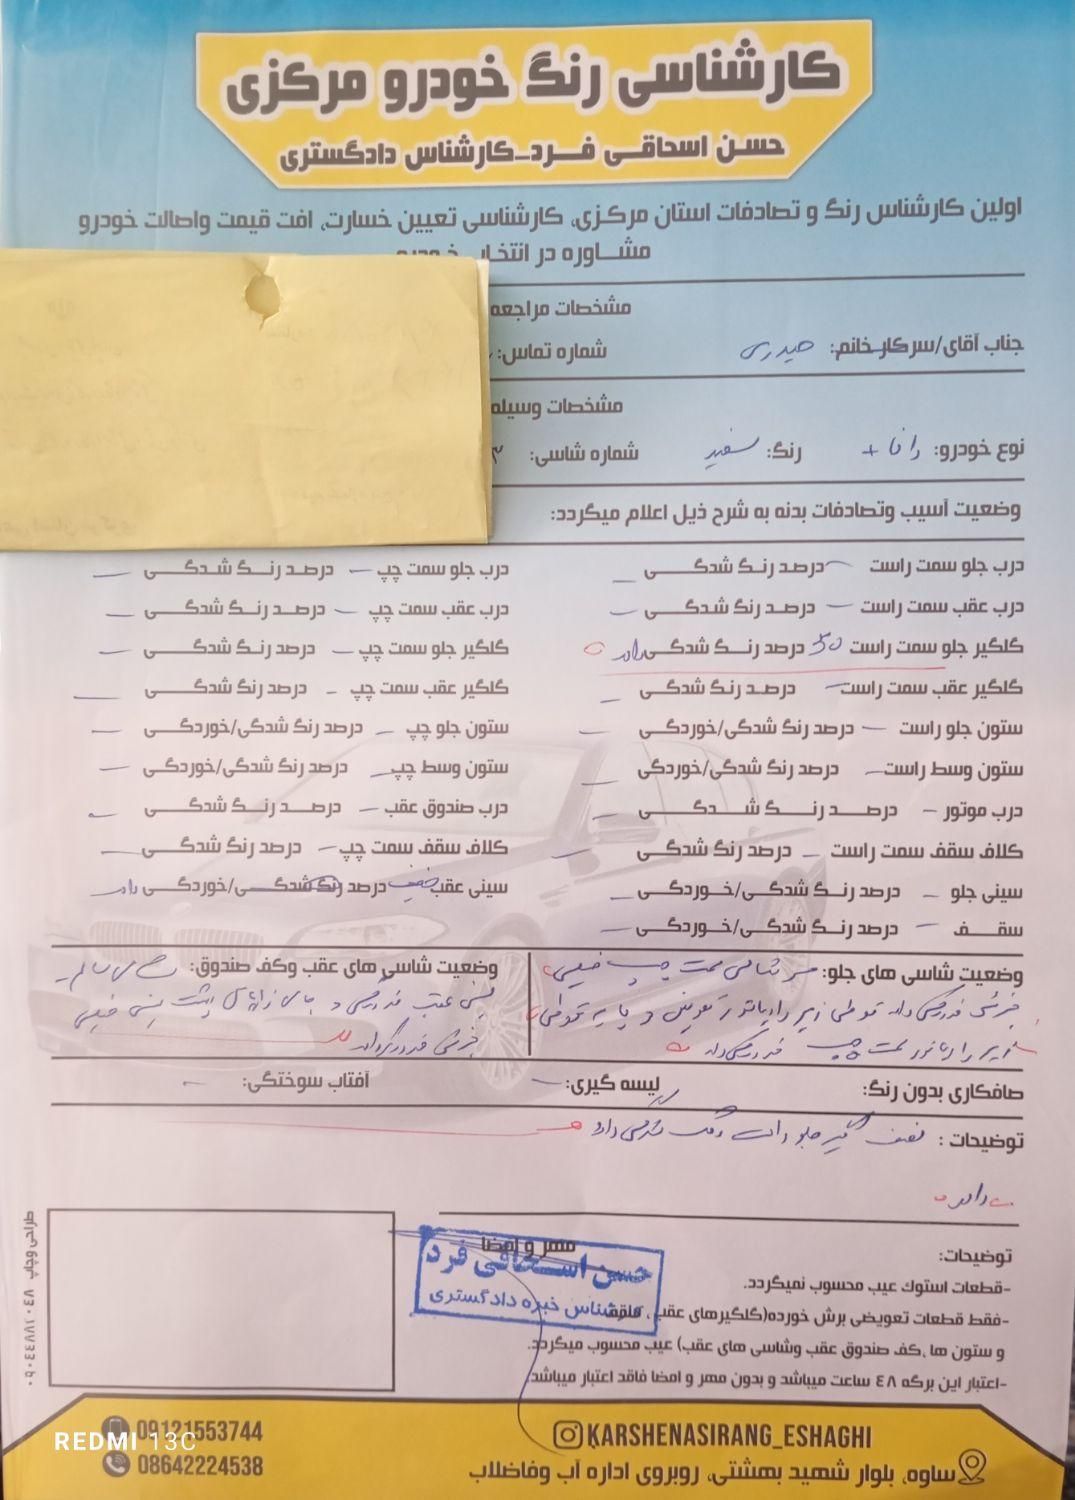 کارشناسی رنگ خودرو مرکزی
حسن اسحاقی فرد_کارشناس دادگستری
اولین کارشناس رنگ و تصادفات استان مرکزی، کارشناسی تعیین خسارت، افت قیمت واصالت خودرو
مشاوره در انتخاب خودرو
مشخصات مراجعه
جناب آقای/سرکارخانم: حیدری شماره تماس:
مشخصات وسیله
نوع خودرو: رانا + رنگ: سفید شماره شاسی: ۳
وضعیت آسیب وتصادفات بدنه به شرح ذیل اعلام میگردد:
درب جلو سمت راست — درصد رنگ شدگی — درب جلو سمت چپ — درصد رنگ شدگی —
درب عقب سمت راست — درصد رنگ شدگی — درب عقب سمت چپ — درصد رنگ شدگی —
گلگیر جلو سمت راست ۵۰ درصد رنگ شدگی دارد گلگیر جلو سمت چپ — درصد رنگ شدگی —
گلگیر عقب سمت راست — درصد رنگ شدگی — گلگیر عقب سمت چپ — درصد رنگ شدگی —
ستون جلو راست — درصد رنگ شدگی/خوردگی — ستون جلو چپ — درصد رنگ شدگی/خوردگی —
ستون وسط راست — درصد رنگ شدگی/خوردگی — ستون وسط چپ — درصد رنگ شدگی/خوردگی —
درب موتور — درصد رنگ شدگی — درب صندوق عقب — درصد رنگ شدگی —
کلاف سقف سمت راست — درصد رنگ شدگی — کلاف سقف سمت چپ — درصد رنگ شدگی —
سینی جلو — درصد رنگ شدگی/خوردگی — سینی عقب خفیف درصد رنگ شدگی/خوردگی دارد
سقف — درصد رنگ شدگی/خوردگی —
وضعیت شاسی های جلو: سر شاسی سمت چپ خیلی
جزئی خوردگی دارد قوطی زیر رادیاتور تعویض و پایه قوطی
زیر رادیاتور سمت چپ خوردگی دارد
وضعیت شاسی های عقب وکف صندوق: شاسی سالم
سینی عقب خوردگی و پشت سینی خیلی
جزئی خوردگی دارد
صافکاری بدون رنگ: لیسه گیری: — آفتاب سوختگی: —
توضیحات: نصف گلگیر جلو راست رنگ شدگی دارد
دارد
مهر و امضا
حسن اسحاقی فرد
کارشناس خبره دادگستری
توضیحات:
-قطعات استوک عیب محسوب نمیگردد.
-فقط قطعات تعویضی برش خورده(گلگیرهای عقب، سقف
و ستون ها ،کف صندوق عقب وشاسی های عقب) عیب محسوب میگردد.
-اعتبار این برگه ۴۸ ساعت میباشد و بدون مهر و امضا فاقد اعتبار میباشد
طراحی وچاپ
09121553744
08642224538
KARSHENASIRANG_ESHAGHI
ساوه، بلوار شهید بهشتی، روبروی اداره آب وفاضلاب
REDMI 13C